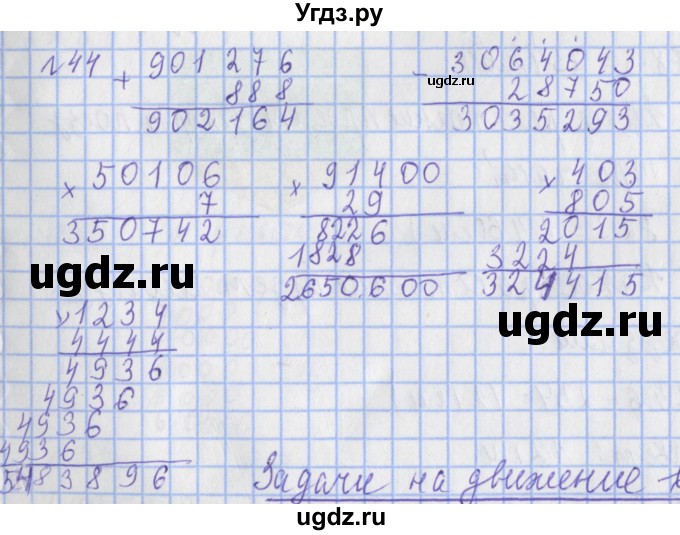 Угдз.ру
№44
+ 901276
888
902164
- 3064043
28750
3035293
ugdz.ru
× 50106
7
350742
× 91400
29
8226
1828
2650600
× 403
805
2015
3224
324415
ugdz.ru
ugdz.ru
× 1234
4444
4936
4936
4936
4936
5483896
Задачи на движение
ugdz.ru